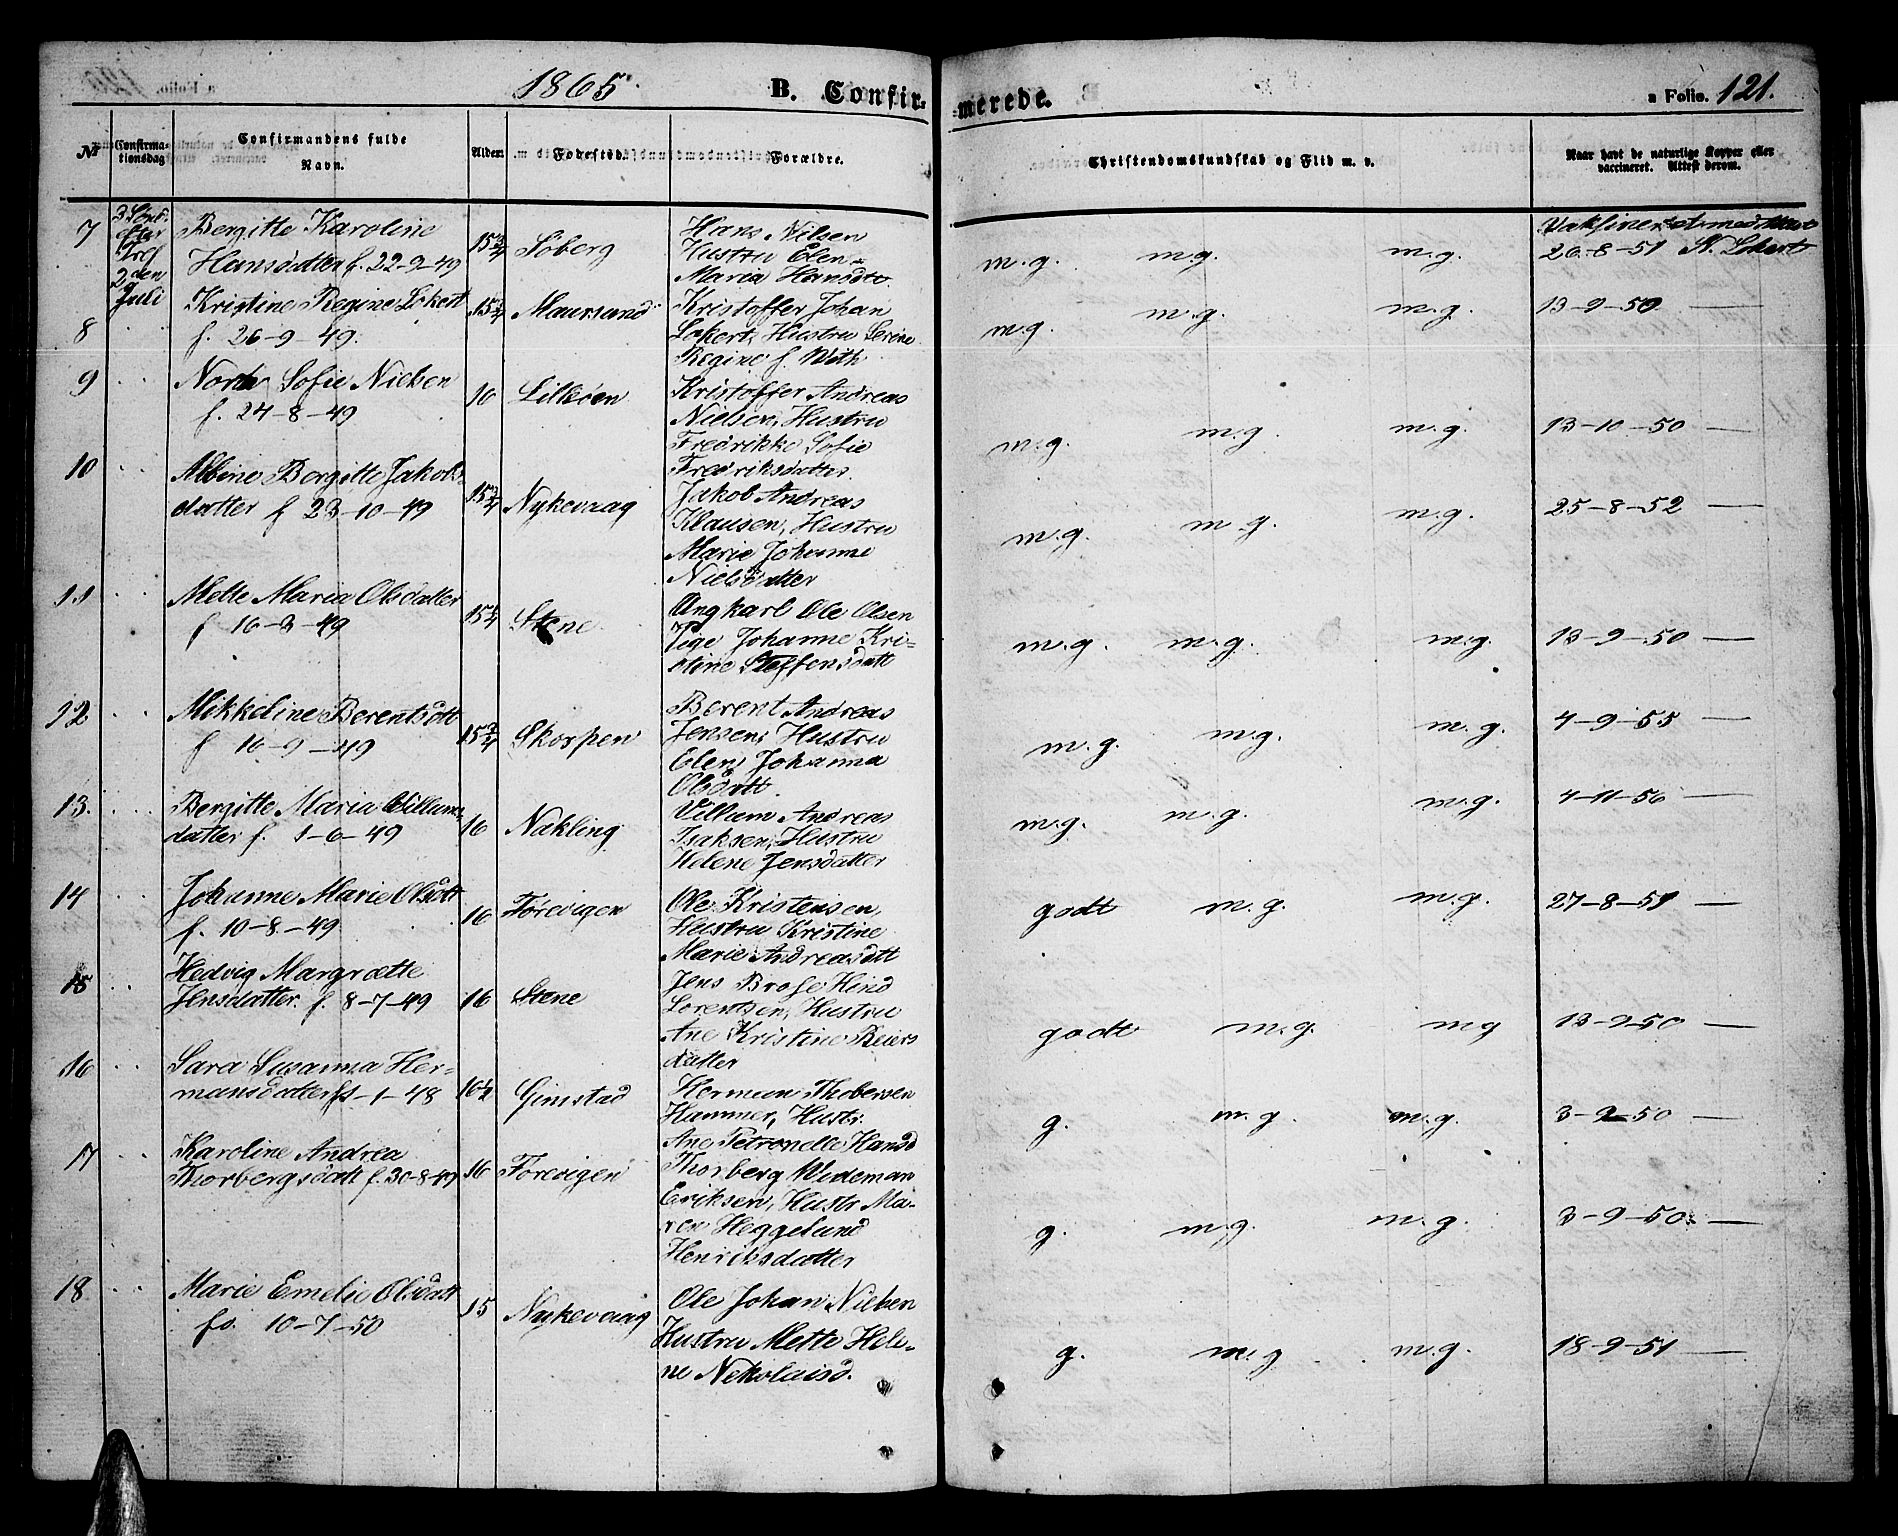 1865. B. Confir-
merede. a Folio. 121.
№ Confirma- tionsdag Confirmandens fulde Navn. Alder. Fødested. Forældre. Christendomskundskab og Flid m. v. Naar havt de naturlige Kopper eller vaccineret. Attest derom.
7 3 Sønd. efter Tref 2den Juli Bergitte Karoline
Hansdatter f. 22-9-49 15 3/4 Søberg Hans Nilsen
Hustru Elen
Maria Hansdtr. m.g. m.g. m.g. 26-8-51
8 Kristine Regine Lokert
f. 26-9-49. 15 3/4 Maursund Kristoffer Johan
Lokert, Hustru Serine
Regine f. With m.g. m.g. m.g. 13-9-50 —
9 Sofie Nielsen
f. 24-8-49 16 Lilleøen Kristoffer Andreas
Nielsen, Hustru
Fredrikke Sofie
Fredriksdatter. m.g. m.g. m.g. 13-10-50 —
10 Albine Bergitte Jakobs-
datter f 23-10-49 15 3/4 Nykevaag Jakob Andreas
Klausen, Hustru
Marie Johanne
Nielsdatter m.g. m.g. m.g. 25-8-52 —
11 Mette Maria Olsdatter
f 16-3-49 Stene Ungkarl Ole Olsen
Pige Johanne Kri-
stine Steffensdatt m.g. m.g. m.g. 13-9-50 —
12 Mikkeline Berentsdtt
f 16-9-49 15 3/4 Skorpen Berent Andreas
Jensen, Hustru
Elen Johanna
Olsdatt. m.g. m.g. m.g. 4-9-55 —
13. Bergitte Maria Villums-
datter f. 1-6-49 16 Nakling Villum Andreas
Isaksen, Hustru
Helene Jensdatter m.g. m.g. m.g. 4-11-56 —
14 Johanne Marie Olsdtt
f. 10-8-49 16 Førevigen Ole Kristensen,
Hustru Kristine
Marie Andreasdatt godt m.g. m.g. 27-8-51 —
15 Hedvig Margrætte
Jensdatter. f. 8-7-49 16 Stene Jens Brose Hind
Lorentsen, Hustru
Ane Kristine Reiers
datter godt m.g. m.g 13-9-50 —
16 Sara Susanna Her-
mansdatter 1-48 16 1/2 Gimstad Herman Thobersen
Hammer, Hustr:
Ane Petronelle Hansd g. m.g. m.g. 3-9-50 —
17 Karoline Andrea
Thorbergsdatt f. 30-8-49 16 Førevigen Thorberg Wideman
Eriksen, Hustr Ma-
ren Heggelund
Henriksdatter g. m.g. m.g. 3-9-50. —
18 Marie Emelie Olsdatt
fo. 10-7-50 15 Nykevaag Ole Johan Nielsen
Hustru Mette Hele-
ne Nekolaisd. g. m.g. m.g. 18-9-51 —